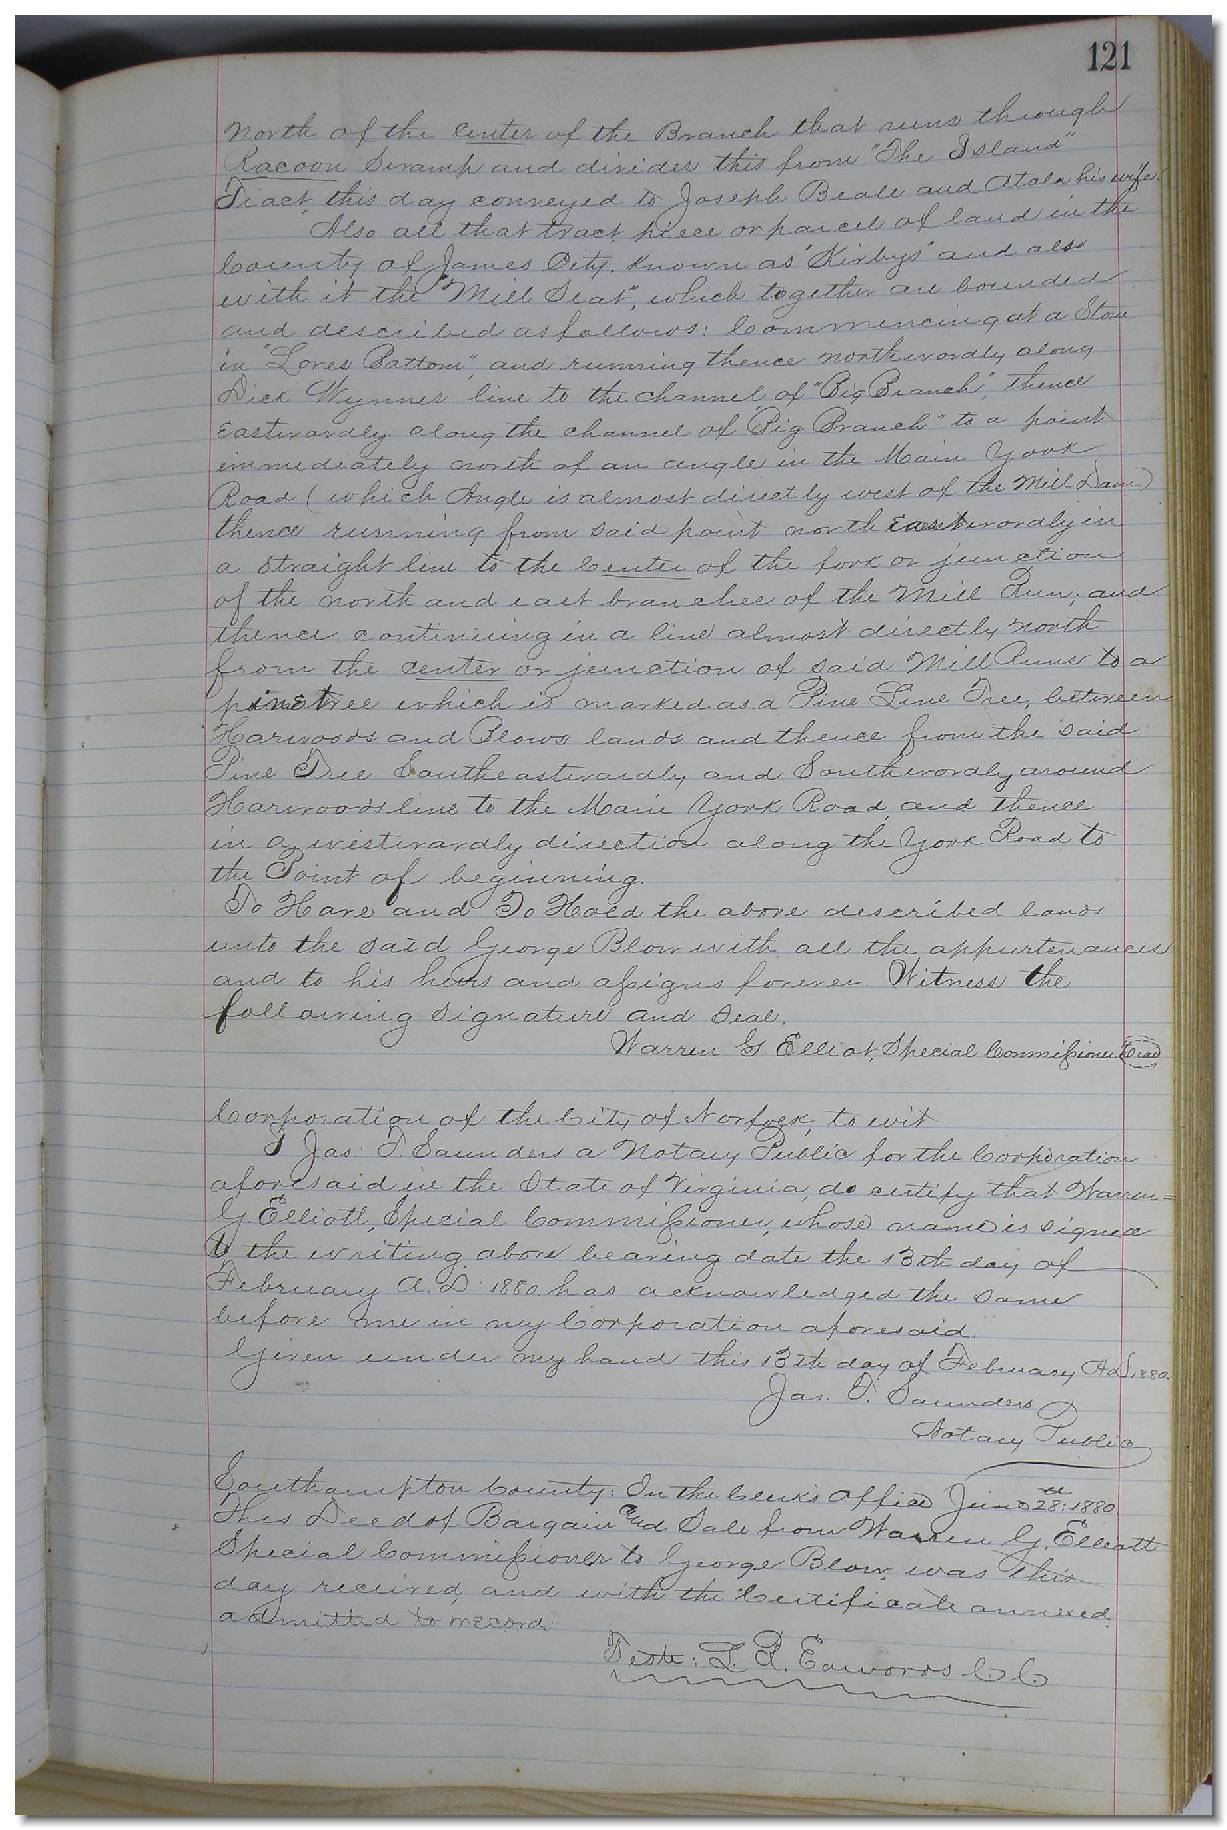 121
north of the center of the Branch that runs through
Racoon Swamp and divides this from "The Island"
Tract, this day conveyed to Joseph Beale and Atala his wife.
Also all that tract, piece or parcel of land in the
County of James City, known as "Kirbys" and also
with it the "Mill Seat", which together are bounded
and described as follows: Commencing at a Stone
in "Loves Bottom", and running thence northwardly along
Dick Wynnes line to the channel of "Big Branch", thence
eastwardly along the channel of Big Branch" to a point
immediately north of an angle in the Main York
Road (which Angle is almost directly west of the Mill-Dam)
thence running from said point north eastwardly in
a straight line to the Center of the fork or junction
of the north and east branches of the Mill Run; and
thence continuing in a line almost directly north
from the center or junction of said Mill Runs to a
pine tree which is marked as a Pine Line Tree, between
Harwoods and Blows lands and thence from the said
Pine Tree Southeastwardly and Southwardly around
Harwoods line to the Main York Road, and thence
in a westwardly direction along the York Road to
the Point of beginning.
To Have and To Hold the above described lands
unto the said George Blow with all the appurtenances
and to his heirs and assigns forever. Witness the
following signature and seal.
Warren G. Elliot, Special Commissioner Seal
Corporation of the City of Norfolk, to wit
I Jas. T. Saunders a Notary Public for the Corporation
aforesaid in the State of Virginia, do certify that Warren
G Elliott, Special Commissioner, whose name is signed
to the writing above bearing date the 13th day of
February A.D. 1880 has acknowledged the same
before me in my Corporation aforesaid.
Given under my hand this 13th day of February A.D. 1880.
Jas. T. Saunders
Notary Public
Southampton County: In the Clerk's Office June 28th 1880
This Deed of Bargain and Sale from Warren G. Elliott
Special Commissioner to George Blow was this
day received, and with the Certificate annexed,
admitted to record
Teste: L. R. Edwards C C